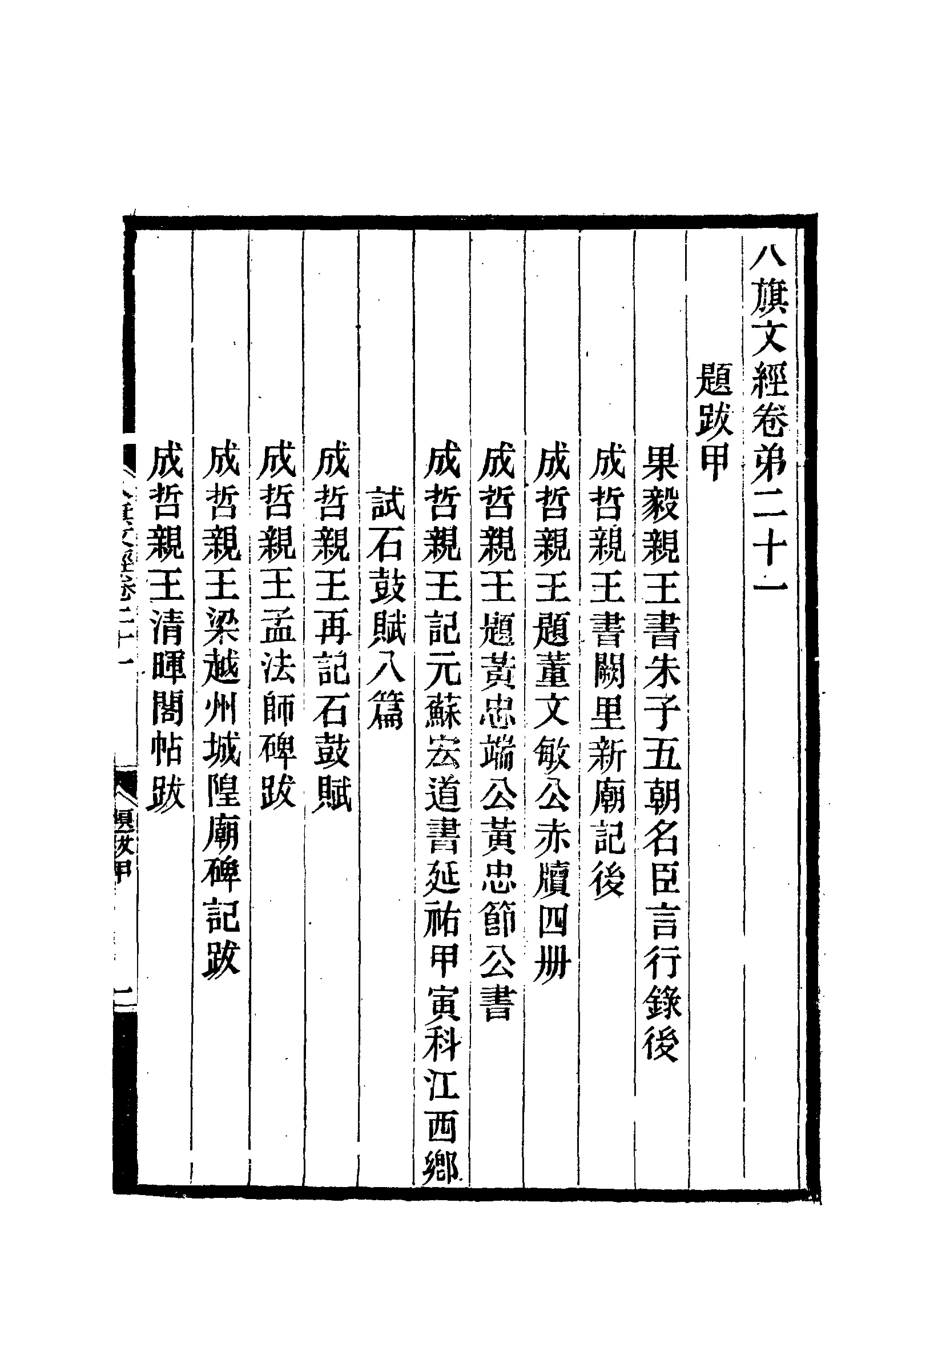 八旗文經卷弟二十一
題跋甲
果毅親王書朱子五朝名臣言行錄後
成哲親王書闕里新廟記後
成哲親王題董文敏公赤牘四册
成哲親王題黃忠端公黃忠節公書
成哲親王記元蘇宏道書延祐甲寅科江西鄉
試石鼓賦八篇
成哲親王再記石鼓賦
成哲親王孟法師碑跋
成哲親王梁越州城隍廟碑記跋
成哲親王清暉閣帖跋
八旗文經卷二十一
題跋甲